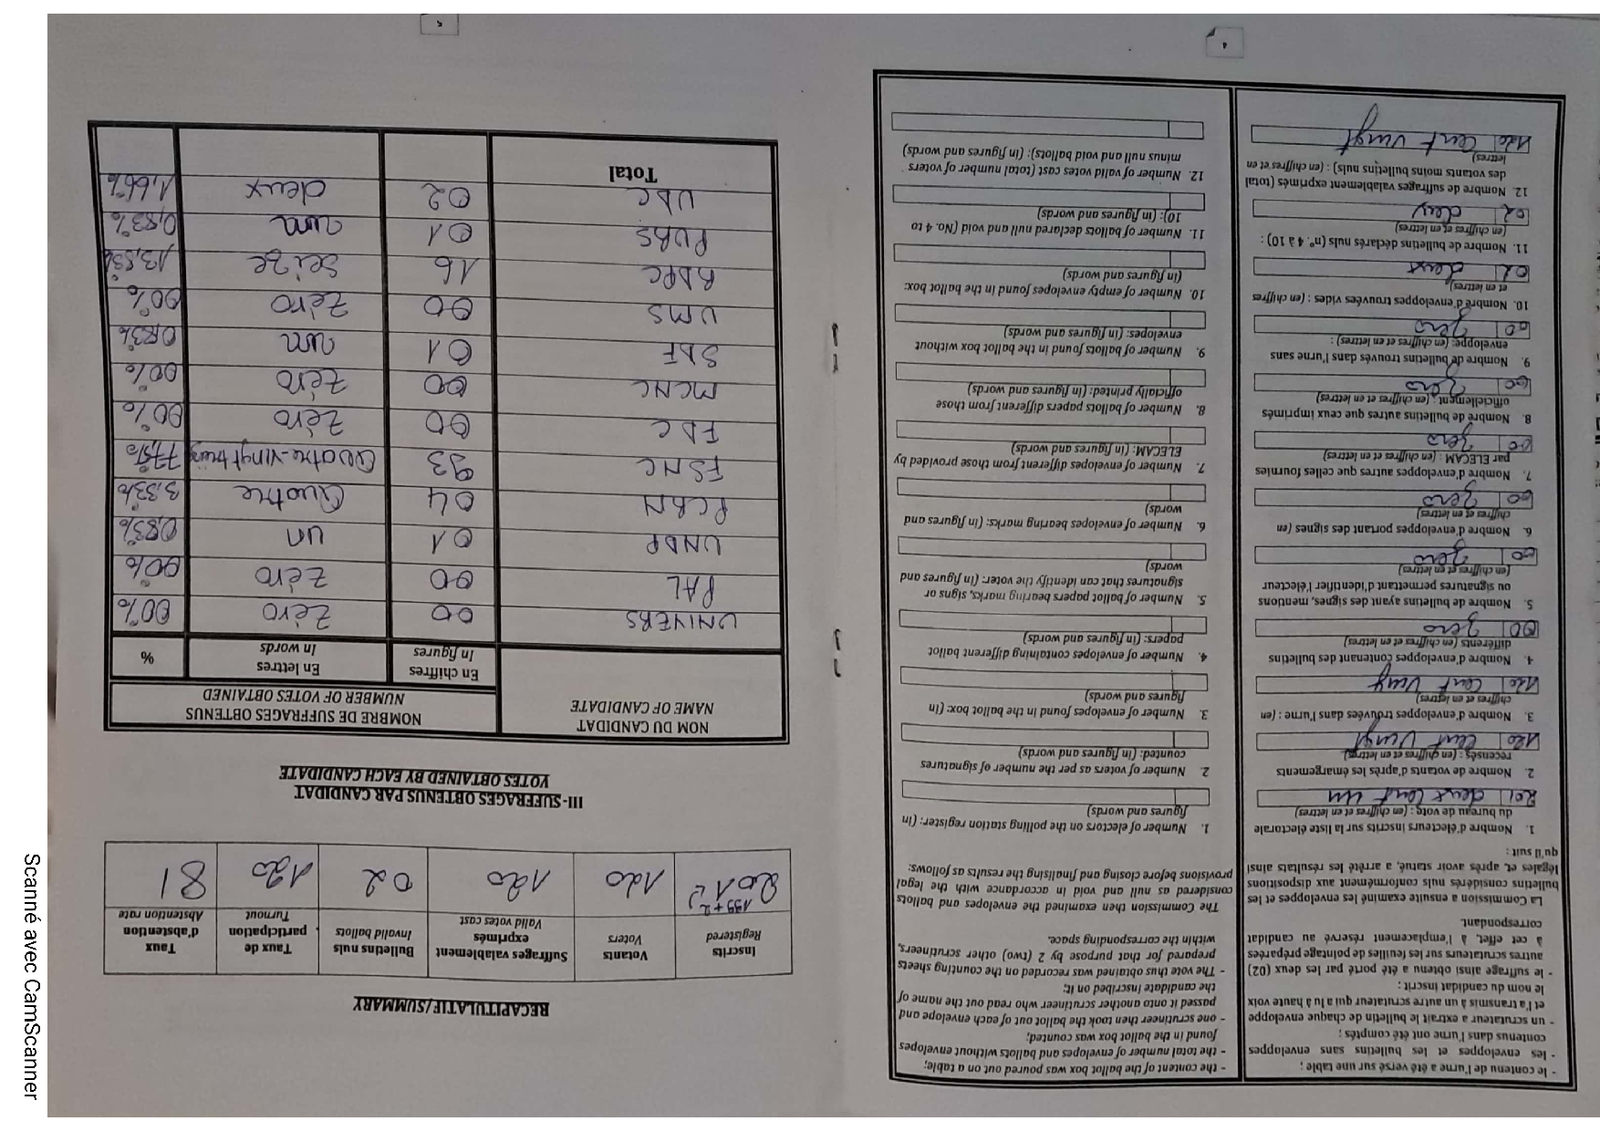 Scanné avec CamScanner
- le contenu de l'urne a été versé sur une table ;
- les enveloppes et les bulletins sans enveloppes contenus dans l'urne ont été comptés ;
- un scrutateur a extrait le bulletin de chaque enveloppe et l'a transmis à un autre scrutateur qui a lu à haute voix le nom du candidat inscrit ;
- le suffrage ainsi obtenu a été porté par les deux (02) autres scrutateurs sur les feuilles de pointage préparées à cet effet, à l'emplacement réservé au candidat correspondant.
La Commission a ensuite examiné les enveloppes et les bulletins considérés nuls conformément aux dispositions légales et, après avoir statué, a arrêté les résultats ainsi qu'il suit :
1. Nombre d'électeurs inscrits sur la liste électorale du bureau de vote : (en chiffres et en lettres)
201 deux cent un
2. Nombre de votants d'après les émargements recensés : (en chiffres et en lettres)
120 Cent Vingt
3. Nombre d'enveloppes trouvées dans l'urne : (en chiffres et en lettres)
120 Cent Vingt
4. Nombre d'enveloppes contenant des bulletins différents (en chiffres et en lettres)
00 zero
5. Nombre de bulletins ayant des signes, mentions ou signatures permettant d'identifier l'électeur (en chiffres et en lettres)
00 zero
6. Nombre d'enveloppes portant des signes (en chiffres et en lettres)
00 zero
7. Nombre d'enveloppes autres que celles fournies par ELECAM : (en chiffres et en lettres)
00 zero
8. Nombre de bulletins autres que ceux imprimés officiellement : (en chiffres et en lettres)
00 zero
9. Nombre de bulletins trouvés dans l'urne sans enveloppe: (en chiffres et en lettres) :
00 zero
10. Nombre d'enveloppes trouvées vides : (en chiffres et en lettres)
02 deux
11. Nombre de bulletins déclarés nuls (n°. 4 à 10) : (en chiffres et en lettres)
02 deux
12. Nombre de suffrages valablement exprimés (total des votants moins bulletins nuls) : (en chiffres et en lettres)
120 Cent Vingt
- the content of the ballot box was poured out on a table;
- the total number of envelopes and ballots without envelopes found in the ballot box was counted;
- one scrutineer then took the ballot out of each envelope and passed it onto another scrutineer who read out the name of the candidate inscribed on it;
- The vote thus obtained was recorded on the counting sheets prepared for that purpose by 2 (two) other scrutineers, within the corresponding space.
The Commission then examined the envelopes and ballots considered as null and void in accordance with the legal provisions before closing and finalising the results as follows:
1. Number of electors on the polling station register: (in figures and words)
2. Number of voters as per the number of signatures counted: (in figures and words)
3. Number of envelopes found in the ballot box: (in figures and words)
4. Number of envelopes containing different ballot papers: (in figures and words)
5. Number of ballot papers bearing marks, signs or signatures that can identify the voter: (in figures and words)
6. Number of envelopes bearing marks: (in figures and words)
7. Number of envelopes different from those provided by ELECAM: (in figures and words)
8. Number of ballots papers different from those officially printed: (in figures and words)
9. Number of ballots found in the ballot box without envelopes: (in figures and words)
10. Number of empty envelopes found in the ballot box: (in figures and words)
11. Number of ballots declared null and void (No. 4 to 10): (in figures and words)
12. Number of valid votes cast (total number of voters minus null and void ballots): (in figures and words)
4
RECAPITULATIF/SUMMARY
Inscrits Registered | Votants Voters | Suffrages valablement exprimés Valid votes cast | Bulletins nuls Invalid ballots | Taux de participation Turnout | Taux d'abstention Abstention rate
199+2 201 | 120 | 120 | 02 | 120 | 81
III- SUFFRAGES OBTENUS PAR CANDIDAT
VOTES OBTAINED BY EACH CANDIDATE
NOM DU CANDIDAT NAME OF CANDIDATE | NOMBRE DE SUFFRAGES OBTENUS NUMBER OF VOTES OBTAINED
En chiffres In figures | En lettres In words | %
UNIVERS 00 Zéro 00%
PAL 00 Zéro 00%
UNDP 01 un 0,83%
PCRN 04 Quatre 3,33%
FSNC 93 Quatre-vingt treize 77,5%
FDC 00 Zéro 00%
MCNC 00 Zéro 00%
SDF 01 um 0,83%
UMS 00 Zéro 00%
RDPC 16 Seize 13,33%
PURS 01 um 0,83%
UDC 02 deux 1,66%
Total
5